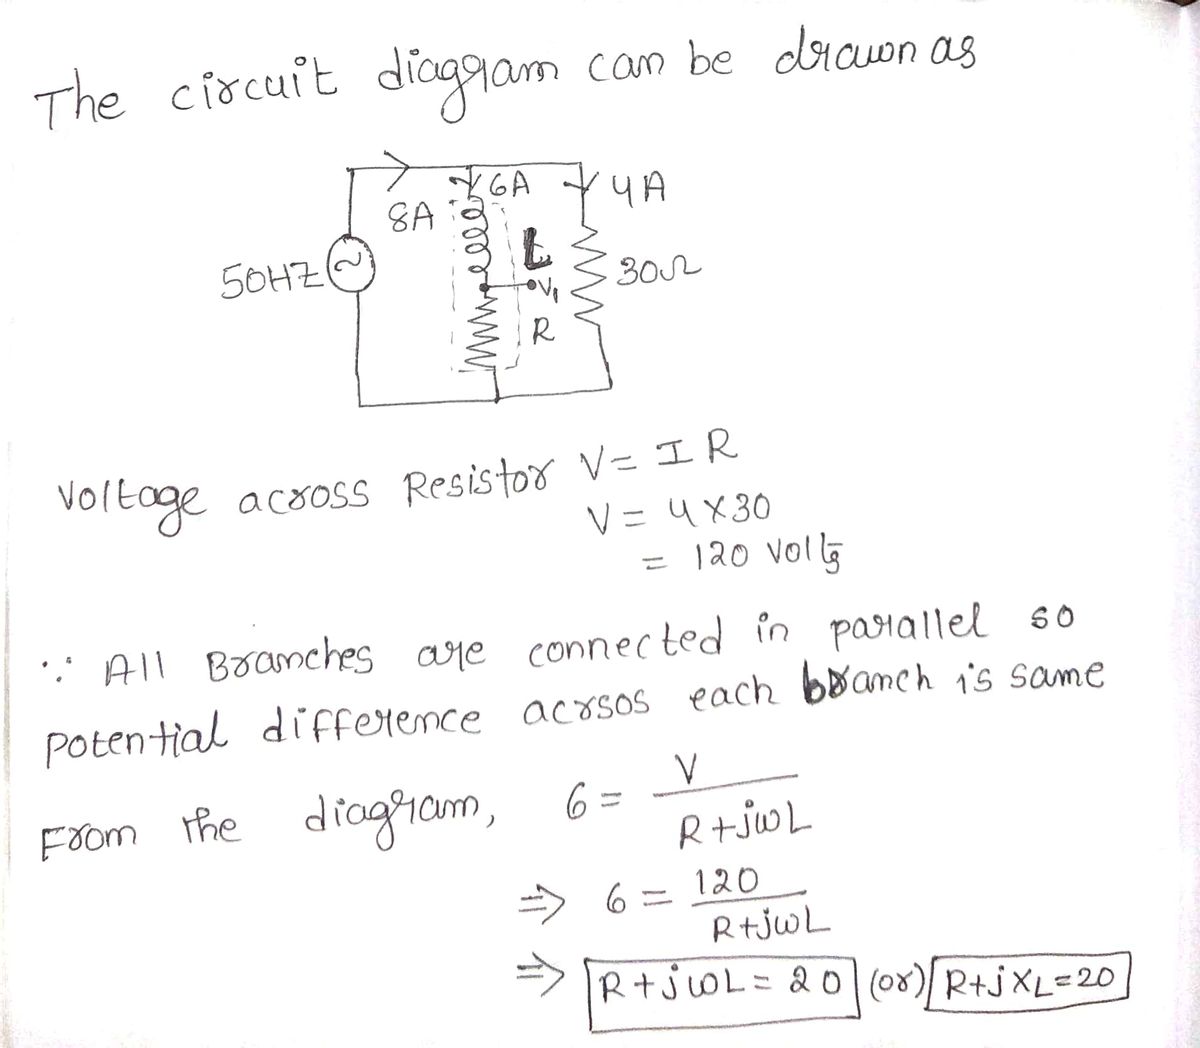 The circuit diagram can be drawn as
8A
6A
4A
50HZ
L
V1
30Ω
R
Voltage across Resistor V= IR
V = 4X30
= 120 Volts
∵ All Branches are connected in parallel so
potential difference acrsos each branch is same
From the diagram, 6 = V / R+jωL
⇒ 6 = 120 / R+jωL
⇒ R+jωL= 20 (or) R+jXL=20